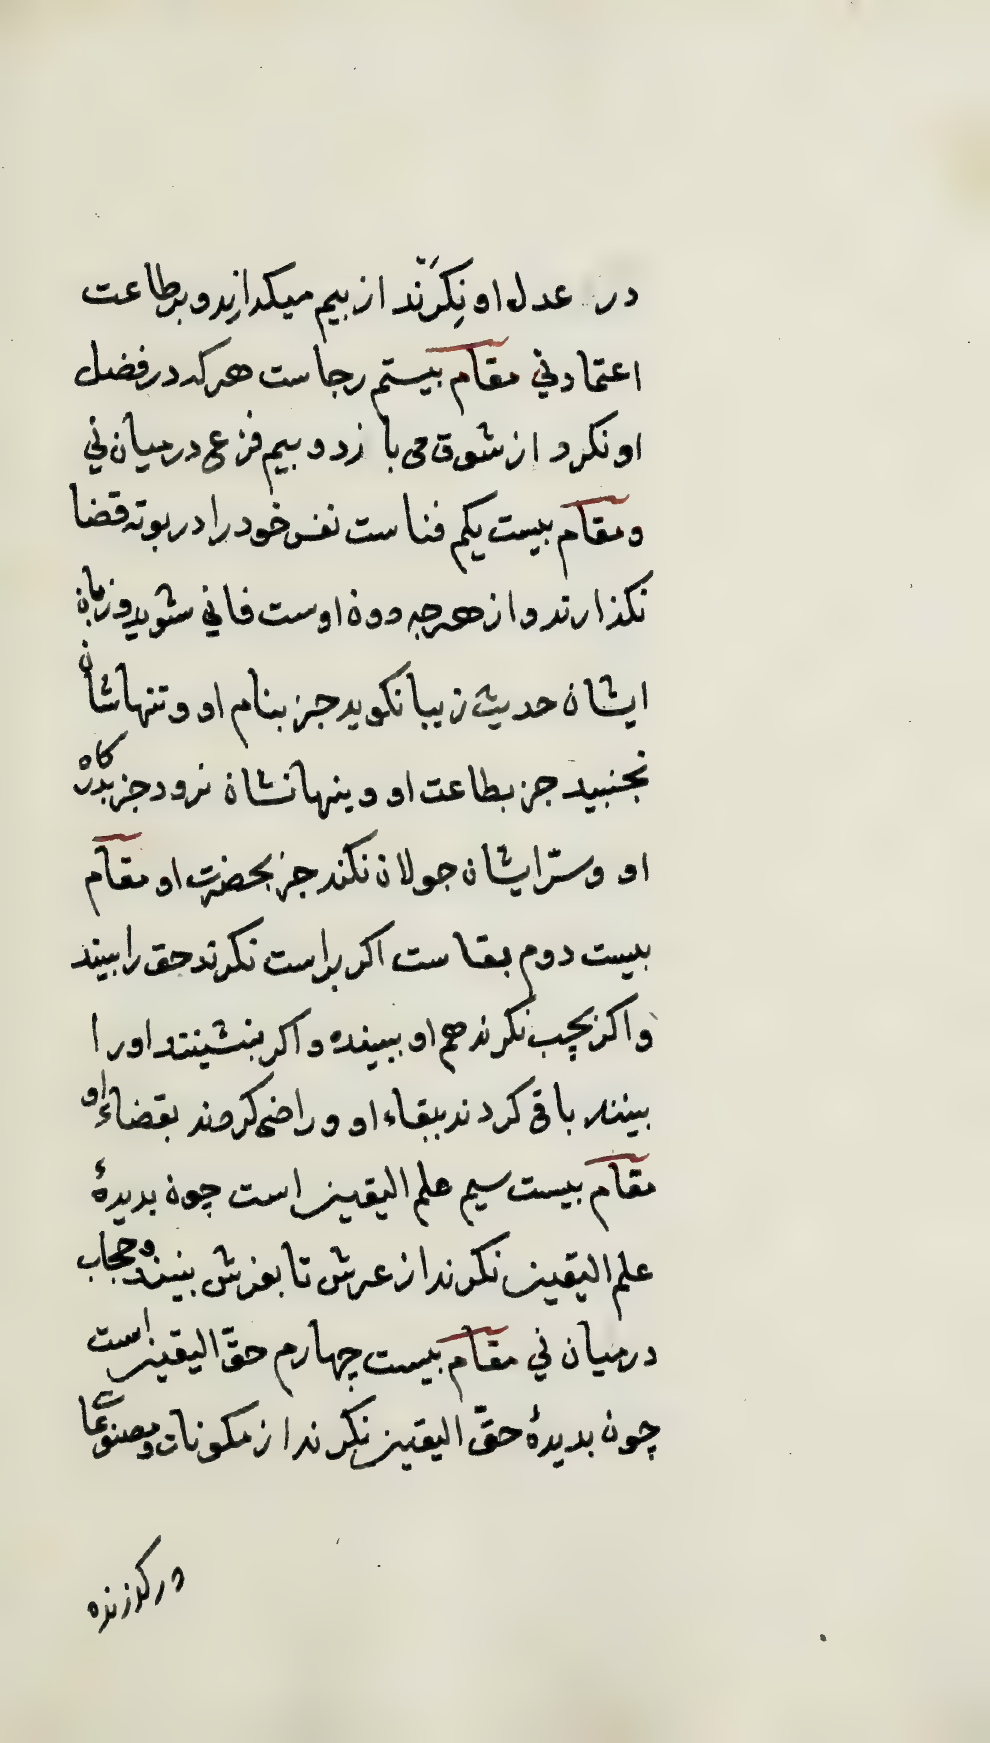 در عدل او نِكَرَّند از بيم ميكدازيد و بر طاعت
اعتماد ني مقام بيستم رجاست هر كه در فضل
او نكرد از شوق مى با زد و بيم فزع در ميان ني
و مقام بيست يكم فناست نفس خود را در بوته قضا
نكذارند و از هرجه دون اوست فاني شويد و زبان
ايشان حديث زيبا نكويد جز بنام او و تنهاشان
نجنبيد جز بطاعت او و ينهانشان نرود جز بدركاه
او و سرّ ايشان جولان نكند جز بحضرت او مقام
بيست دوم بقاست اكر براست نكرند حق را بيند
و اكر بچب نكرند هم او ببينده و اكر بنشينند او را
بينند باقى كردند ببقاء او و راضى كردند بقضاء او
مقام بيست سيم علم اليقين است چون بديدهٔ
علم اليقين نكرند از عرش تا بفرش بينند و حجاب
درميان ني مقام بيست چهارم حقّ اليقين است
چون بديدهٔ حقّ اليقين نكرند از مكونات و مصنوعات
در كذرنده